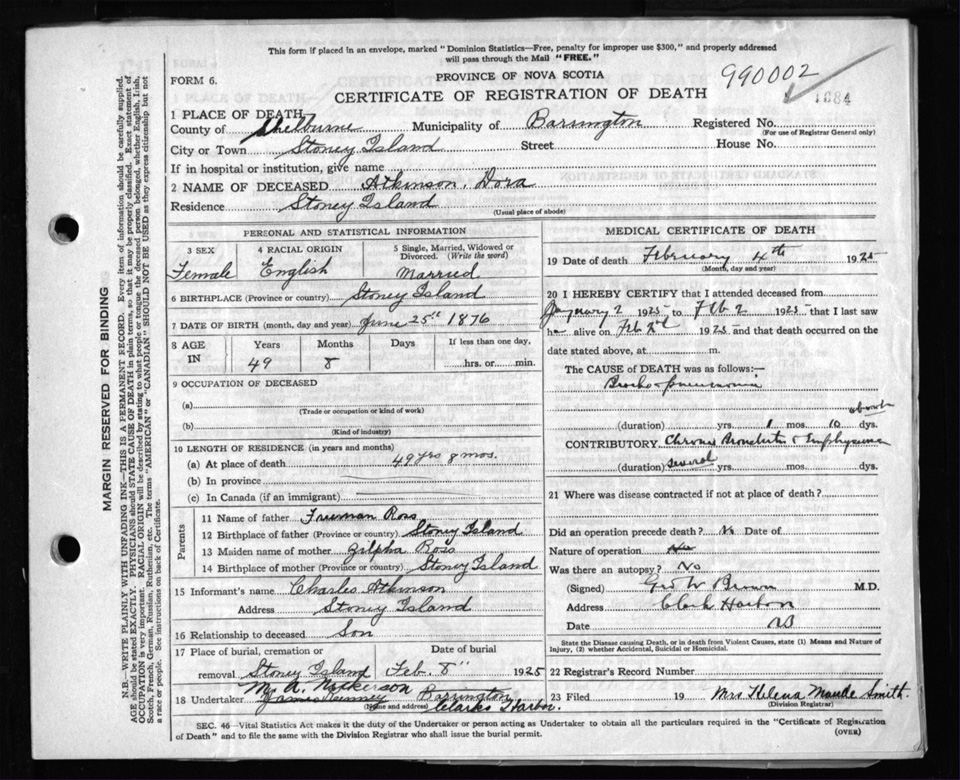 This form if placed in an envelope, marked "Dominion Statistics—Free, penalty for improper use $300," and properly addressed
will pass through the Mail "FREE."
FORM 6.
PROVINCE OF NOVA SCOTIA
990002
CERTIFICATE OF REGISTRATION OF DEATH
1684
1 PLACE OF DEATH
County of Shelburne Municipality of Barrington Registered No.
(For use of Registrar General only)
City or Town Stoney Island Street House No.
If in hospital or institution, give name
2 NAME OF DECEASED Atkinson, Dora
Residence Stoney Island
(Usual place of abode)
PERSONAL AND STATISTICAL INFORMATION
3 SEX 4 RACIAL ORIGIN 5 Single, Married, Widowed or Divorced. (Write the word)
Female English Married
6 BIRTHPLACE (Province or country) Stoney Island
7 DATE OF BIRTH (month, day and year) June 25st 1876
8 AGE IN Years Months Days If less than one day,
49 8 hrs. or min.
9 OCCUPATION OF DECEASED
(a)
(Trade or occupation or kind of work)
(b)
(Kind of industry)
10 LENGTH OF RESIDENCE (in years and months)
(a) At place of death 49 yrs 8 mos.
(b) In province
(c) In Canada (if an immigrant)
Parents
11 Name of father Freeman Ross
12 Birthplace of father (Province or country) Stoney Island
13 Maiden name of mother Zilpha Ross
14 Birthplace of mother (Province or country) Stoney Island
15 Informant's name Charles Atkinson
Address Stoney Island
16 Relationship to deceased Son
17 Place of burial, cremation or removal Date of burial
Stoney Island Feb. 8" 1925
M. A. Nickerson Barrington
18 Undertaker Clarks Harbor.
(Name and address)
MEDICAL CERTIFICATE OF DEATH
19 Date of death February 4th 1925
(Month, day and year)
20 I HEREBY CERTIFY that I attended deceased from
January 2 1925 to Feb 2 1925 that I last saw
her alive on Feb 2d 1925 and that death occurred on the
date stated above, at m.
The CAUSE OF DEATH was as follows:—
Broncho-pneumonia
about
(duration) yrs. 1 mos. 10 dys.
CONTRIBUTORY Chronic Bronchitis & Emphysema
(duration) several yrs. mos. dys.
21 Where was disease contracted if not at place of death?
Did an operation precede death? No Date of
Nature of operation
Was there an autopsy? No
(Signed) Geo W Brown M.D.
Address Clark Harbor
Date NS
State the Disease causing Death, or in death from Violent Causes, state (1) Means and Nature of
Injury, (2) whether Accidental, Suicidal or Homicidal.
22 Registrar's Record Number
23 Filed 19 Mrs Helena Maude Smith.
(Division Registrar)
SEC. 46—Vital Statistics Act makes it the duty of the Undertaker or person acting as Undertaker to obtain all the particulars required in the "Certificate of Registration
of Death" and to file the same with the Division Registrar who shall issue the burial permit.
(OVER)
MARGIN RESERVED FOR BINDING
N.B.—WRITE PLAINLY WITH UNFADING INK—THIS IS A PERMANENT RECORD. Every item of information should be carefully supplied.
AGE should be stated EXACTLY. PHYSICIANS should STATE CAUSE OF DEATH in plain terms, so that it may be properly classified. Exact statement of
OCCUPATION is very important. RACIAL ORIGIN will be described by stating to what people or tongue the deceased person belonged, whether English, Irish,
Scotch, French, German, Russian, Ruthenian, etc. The terms "AMERICAN" or "CANADIAN" SHOULD NOT BE USED as they express citizenship but not
a race or people. See instructions on back of Certificate.